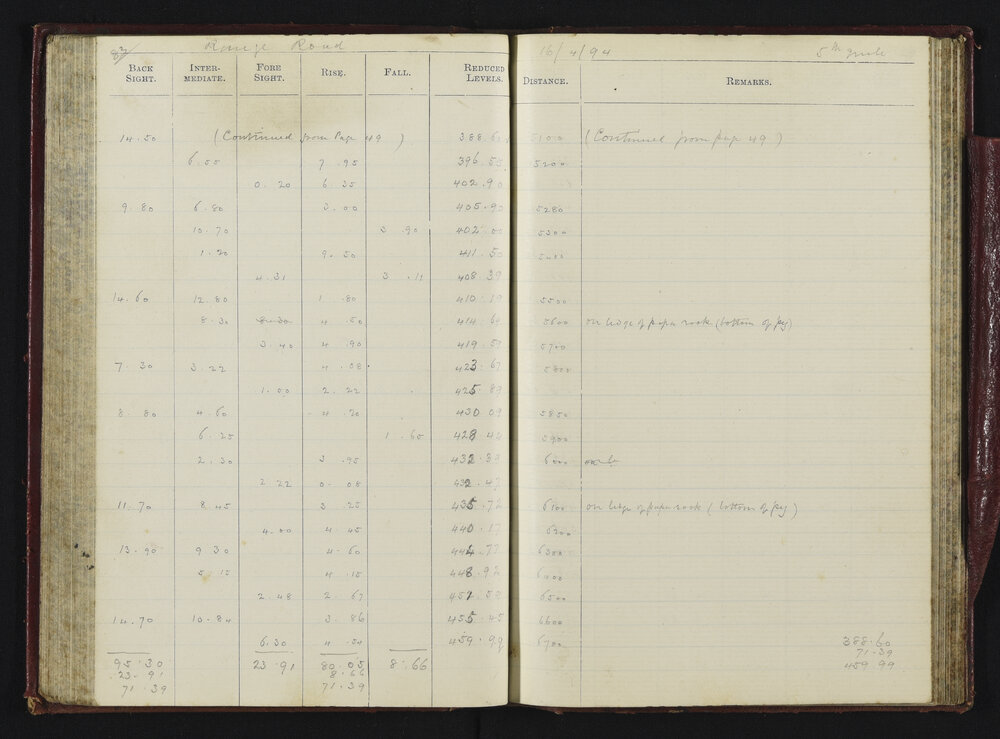 83 Range Road 16/4/94 5th grade
BACK SIGHT. INTERMEDIATE. FORE SIGHT. RISE. FALL. REDUCED LEVELS. DISTANCE. REMARKS.
14.50 (Continued from Page 49) 388.60 5100 (Continued from page 49)
6.55 7.95 396.55 5200
0.20 6.35 402.90
9.80 6.80 3.00 405.90 5280
10.70 3.90 402.00 5300
1.20 9.50 411.50 5400
4.31 3.11 408.39
14.60 12.80 1.80 410.19 5500
8.30 8.30 4.50 414.69 5600 on ledge of papa rock (bottom of peg)
3.40 4.90 419.59 5700
7.30 3.22 4.08 423.67 5800
1.00 2.22 425.89
8.80 4.60 4.20 430.09 5850
6.25 1.65 428.44 5900
2.30 3.95 432.39 6000
2.22 0.08 432.47
11.70 8.45 3.25 435.72 6100 on ledge of papa rock (bottom of peg)
4.00 4.45 440.17 6200
13.90 9.30 4.60 444.77 6300
5.15 4.15 448.92 6400
2.48 2.67 451.59 6500
14.70 10.84 3.86 455.45 6600
6.30 4.54 459.99 6700 388.60
95.30 23.91 80.05 8.66 71.39
23.91 8.66 459.99
71.39 71.39